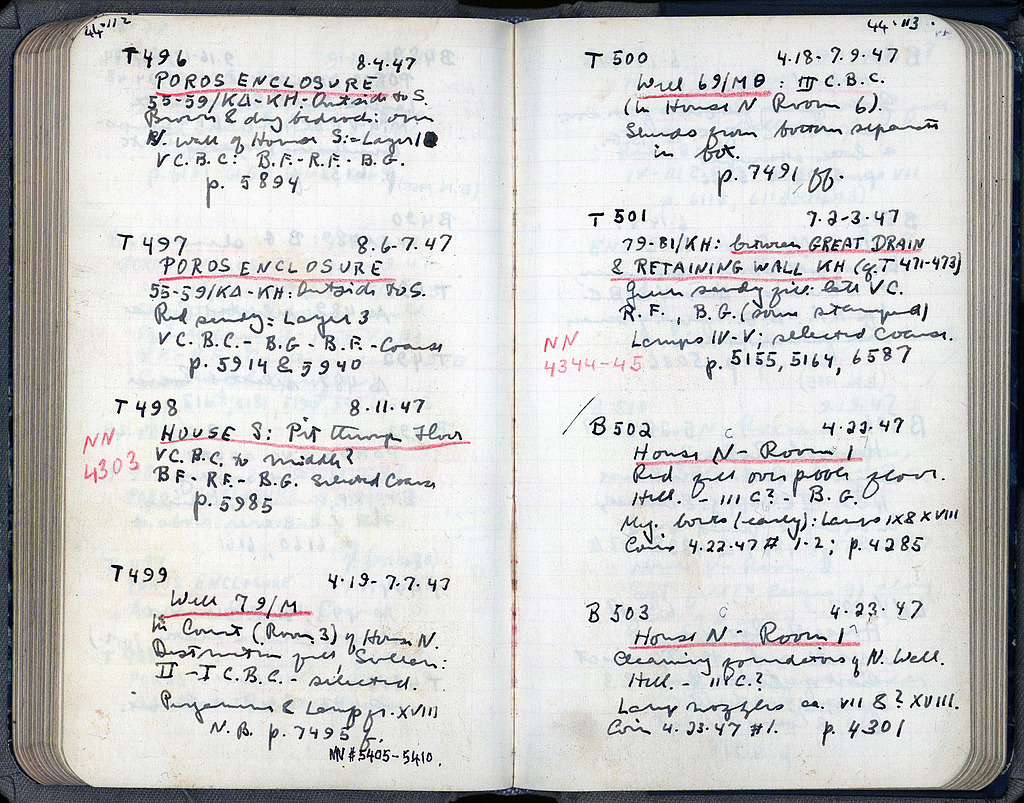 44·112
T 496 8·4·47
POROS ENCLOSURE
55-59/KΔ-KH: Outside to S.
Brown & dug bedrock: over
N. wall of House S: = Layer 1
V C. B.C: B.F.- R.F.- B.G.
p. 5894
T 497 8.6-7.47
POROS ENCLOSURE
55-59/KΔ-KH: Outside to S.
Red sandy: Layer 3
V C. B.C.- B.G - B.F.- Coarse
p. 5914 & 5940
T 498 8.11.47
HOUSE S: Pit through Floor
NN
4303
V C. B.C. to middle?
BF - RF.- B.G. Selected Coarse
p. 5985
T 499 4.19-7.7.47
Well 79/M
In Court (Room 3) of House N.
Destruction fill, Sullan:
II - I C. B.C. - selected.
Pergamene & Lamp fr. XVIII
N.B. p. 7495 f.
NN # 5405-5410.
44·113
T 500 4.18-7.9.47
Well 69/MΘ: III C. B.C.
(In House N Room 6).
Sherds from bottom separate
in box.
p. 7491 ff.
T 501 7.2-3.47
79-81/KH: between GREAT DRAIN
& RETAINING WALL KH (cf. T 471-473)
Green sandy fill: late V C.
R.F., B.G. (some stamped)
Lamps IV-V; selected Coarse.
NN
4344-45
p. 5155, 5164, 6587
B 502 C 4.22.47
House N - Room 1?
Red fill over pebble floor.
Hell. - III C? - B.G.
Meg. bowls (early): Lamps IX & XVIII
Coins 4.22.47 # 1-2; p. 4285
B 503 C 4.23.47
House N - Room 1?
Cleaning foundations of N. Wall.
Hell. - II C.?
Lamp nozzles ca. VII & ? XVIII.
Coin 4.23.47 #1. p. 4301